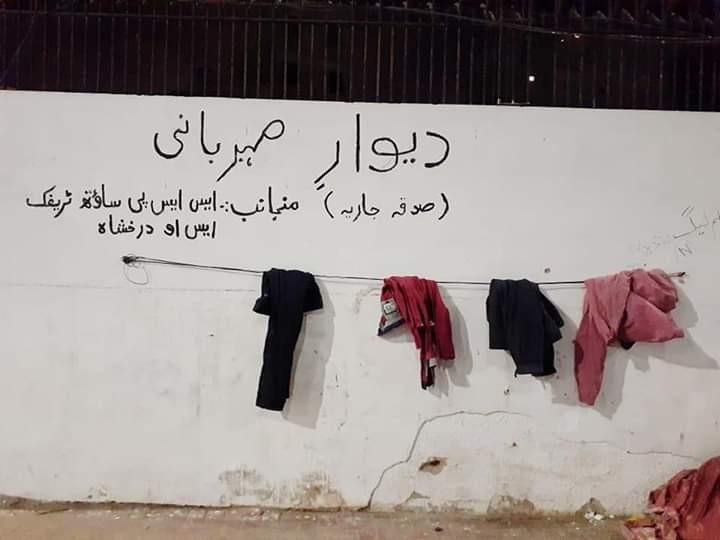 دیوارِ مہربانی
(صدقہ جاریہ) منجانب:۔ ایس ایس پی ساؤتھ ٹریفک
ایس او درخشاہ